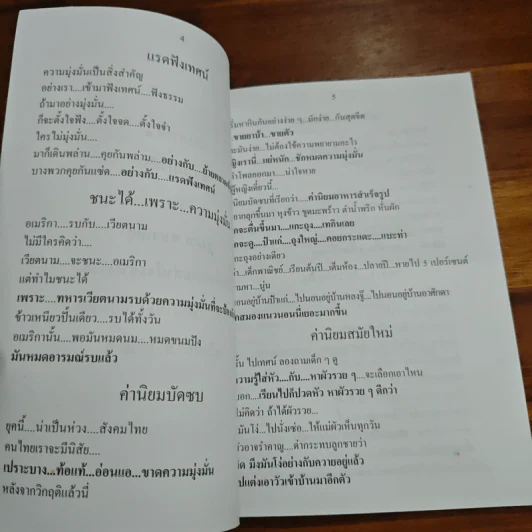 4
แรดฟังเทศน์
ความมุ่งมั่นเป็นสิ่งสำคัญ
อย่างเรา....เข้ามาฟังเทศน์....ฟังธรรม
ถ้ามาอย่างมุ่งมั่น....
ก็จะตั้งใจฟัง....ตั้งใจจด....ตั้งใจจำ
ใครไม่มุ่งมั่น....
มาก็เดินพล่าน....คุยกันพล่าม....อย่างกับ....ย้าย
บางพวกคุยกันแซ่ด...อย่างกับ....แรดฟังเทศน์
ชนะได้...เพราะ...ความมุ่งมั่น
อเมริกา....รบกับ....เวียดนาม
ไม่มีใครคิดว่า....
เวียดนาม....จะชนะ....อเมริกา
แต่ทำไมชนะได้
เพราะ....ทหารเวียดนามรบด้วยความมุ่งมั่นที่จะ
ข้าวเหนียวปั้นเดียว....รบได้ทั้งวัน
อเมริกานั้น....พอมันหมดนม....หมดขนมปัง
มันหมดอารมณ์รบแล้ว
ค่านิยมบัดซบ
ยุคนี้....น่าเป็นห่วง....สังคมไทย
คนไทยเราจะมีนิสัย....
เปราะบาง...ท้อแท้...อ่อนแอ...ขาดความมุ่งมั่น
หลังจากวิกฤติแล้วนี่
5
หากินกันอย่างง่าย ๆ...มักง่าย...กันสุดขีด
ขายยาบ้า...ขายตัว
มันง่าย...ไม่ต้องใช้ความพยายามอะไร
หญิงเรานี่...แย่หนัก...ชักหมดความมุ่งมั่น
โพลออกมา....น่าใจหาย
ผู้หญิงเดี๋ยวนี้...
นิยมบัดซบที่เรียกว่า....ค่านิยมอาหารสำเร็จรูป
ลุกขึ้นมา หุงข้าว ขูดมะพร้าว ตำน้ำพริก หั่นผัก
จะตื่นขึ้นมา...แกะถุง....เทกินเลย
จะดู...ป๋าแก่...ถุงใหญ่...คอยกระแตะ...แบะท่า
ถุงอย่างเดียว
เด็กพาณิชย์...เรียนต้นปี...เต็มห้อง...ปลายปี...หายไป 5 เปอร์เซนต์
หา...นู่น
นอนอยู่บ้านป๋าแก่...ไปนอนอยู่บ้านหลงจู๊...ไปนอนอยู่บ้านอาศักดา
สมองแนวนอนนี่เยอะมากขึ้น
ค่านิยมสมัยใหม่
ไปเทศน์ ลองถามเด็ก ๆ ดู
ความรู้ใส่หัว....กับ....หาผัวรวย ๆ....จะเลือกเอาไหน
บอก...เรียนไปก็ปวดหัว หาผัวรวย ๆ ดีกว่า
ไม่คิดว่า ถ้าได้ผัวรวย...
มันโง่...ไปนั่งเซ่อ...ให้แม่ผัวเห็นทุกวัน
อาจรำคาญ....ด่ากระทบลูกชายว่า
มึงมันโง่อย่างกับควายอยู่แล้ว
ไปแต่งเอาวัวเข้าบ้านมาอีกตัว